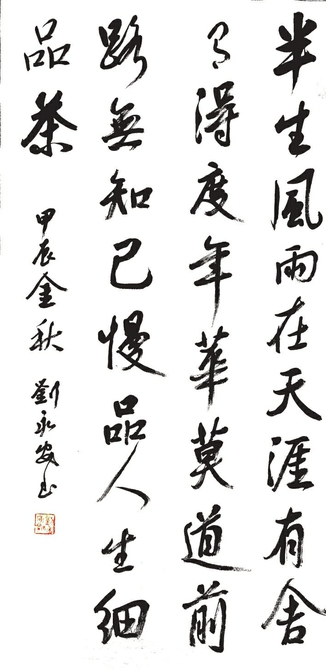 半生風雨在天涯有舍
有得度年華莫道前
路無知己慢品人生細
品茶
甲辰金秋 劉永安书